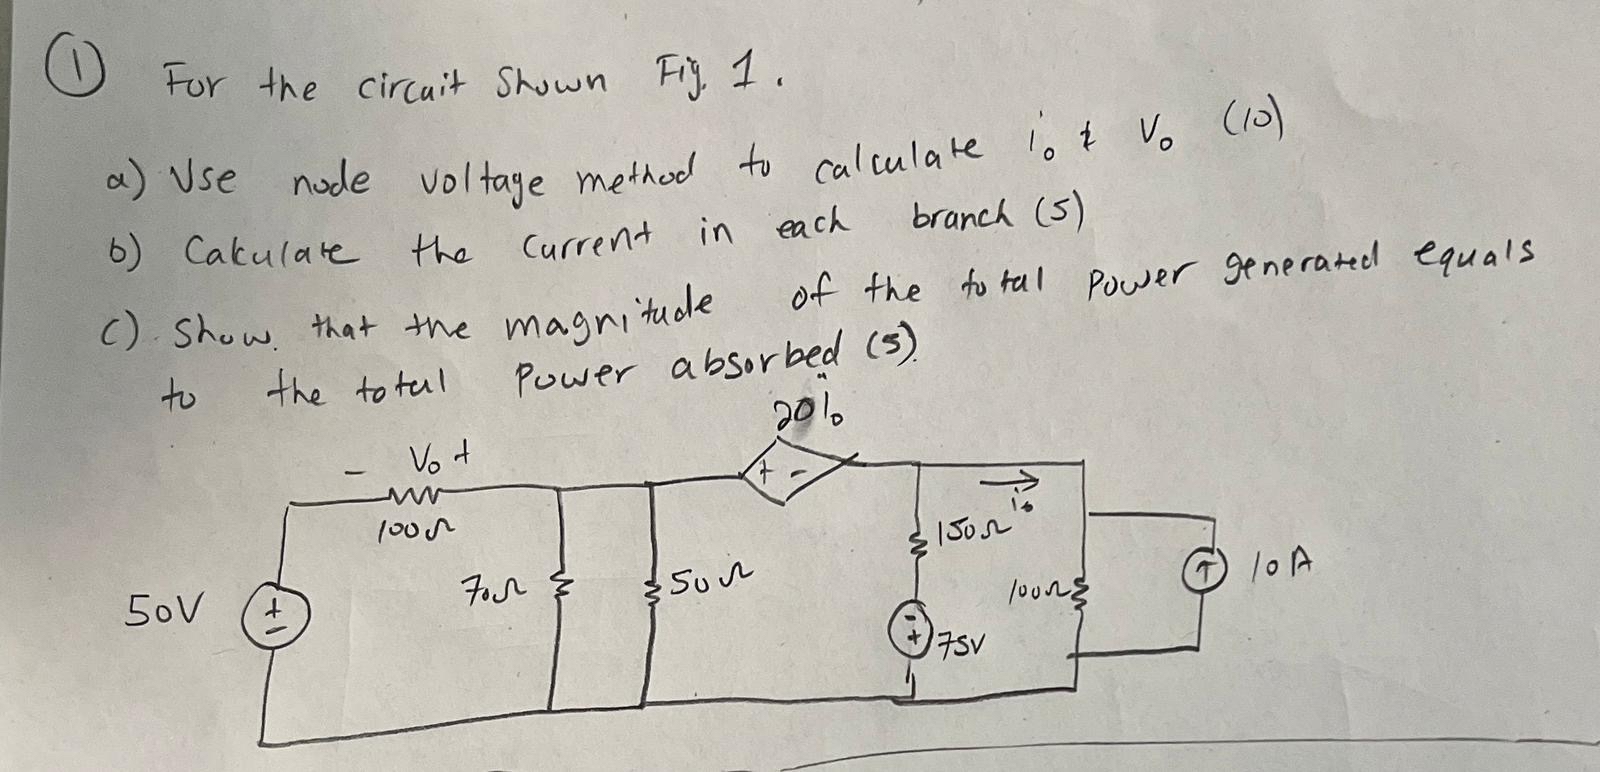 1 For the circuit Shown Fig. 1.
a) Use node voltage method to calculate i₀ & V₀ (10)
b) Calculate the current in each branch (5)
c) Show. that the magnitude of the total power generated equals
to the total Power absorbed (5).
20i₀
- V₀ +
100Ω
+ -
i₀
150Ω
70Ω
50Ω
100Ω
10A
50V
+
-
-
+
75V